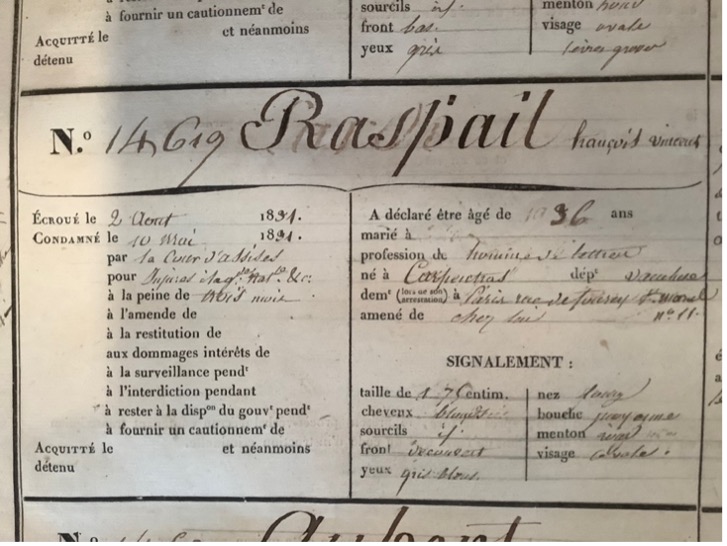 à fournir un cautionnem.ᵗ de
ACQUITTÉ le et néanmoins
détenu
sourcils id.
front bas.
yeux gris
menton rond
visage ovale
N.º 14619 Raspail françois vincent
ÉCROUÉ le 2 Aout 1831.
CONDAMNÉ le 10 Mai 1831.
par la Cour d'assises
pour Injures
à la peine de trois mois
à l'amende de
à la restitution de
aux dommages intérêts de
à la surveillance pend.ᵗ
à l'interdiction pendant
à rester à la disp.ᵒⁿ du gouv.ᵗ pend.ᵗ
à fournir un cautionnem.ᵗ de
ACQUITTÉ le et néanmoins
détenu
A déclaré être âgé de 36 ans
marié à
profession de homme de lettres
né à Carpentras dép.ᵗ vaucluse
dem.ᵗ (lors de son arrestation) à Paris rue de n.º 11.
amené de chez lui
SIGNALEMENT :
taille de 1 7 Centim.
cheveux blonds
sourcils id.
front découvert
yeux gris bleus.
nez long
bouche moyenne
menton rond
visage ovale.
N.º Aubert